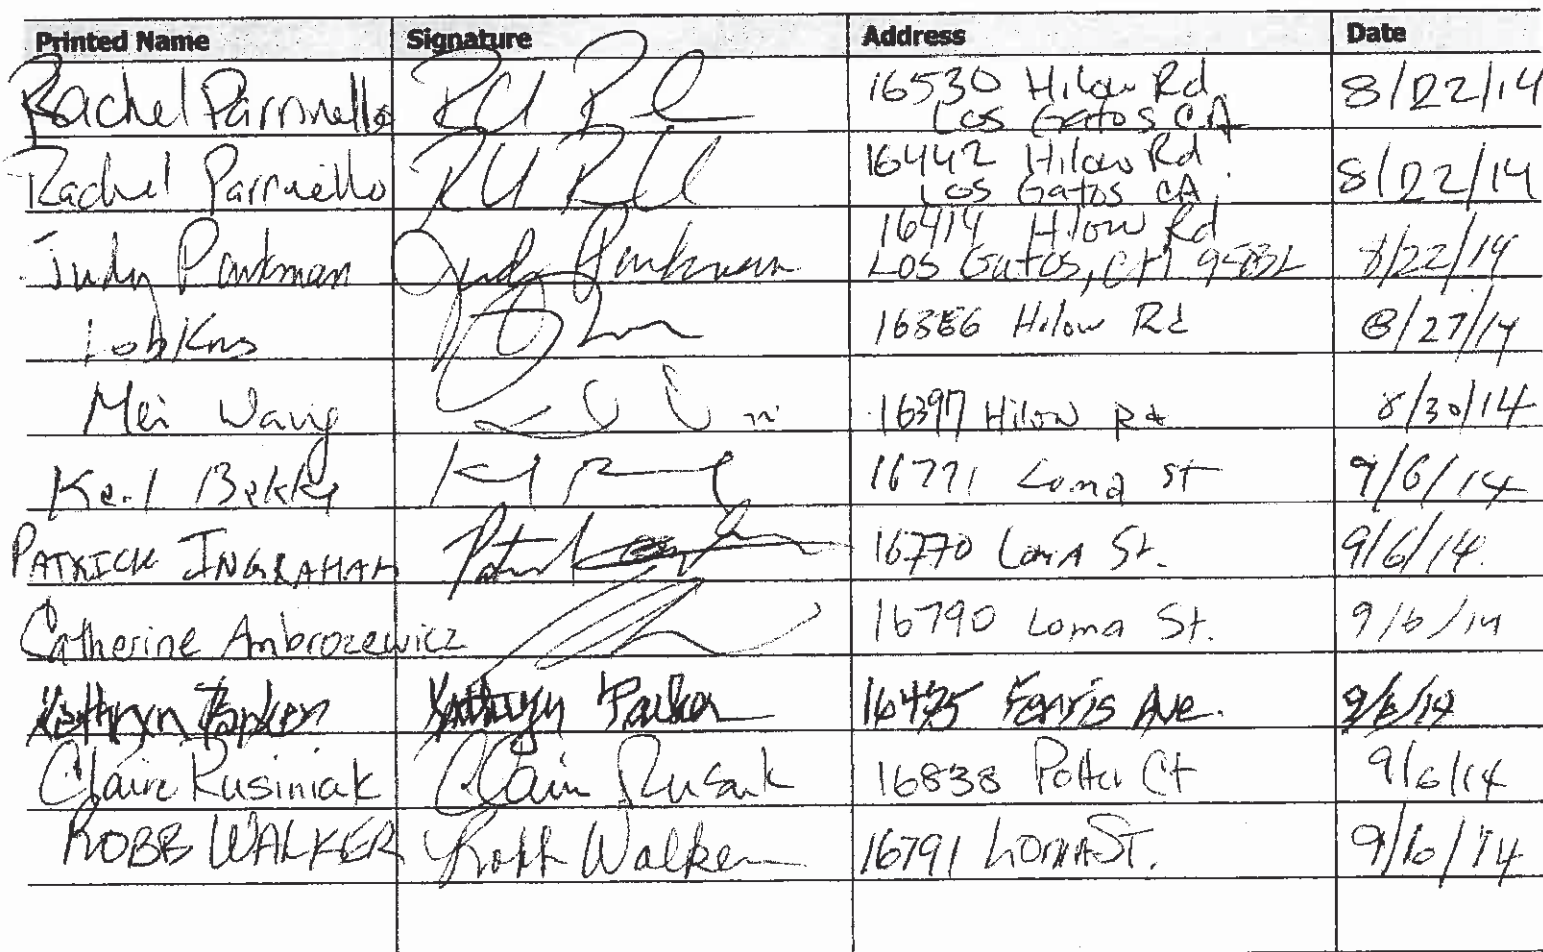 Printed Name Signature Address Date
Rachel Parrinello 16530 Hilow Rd 8/22/14
Los Gatos CA
Rachel Parrinello 16442 Hilow Rd 8/22/14
Los Gatos CA
Judy Parkman Judy Parkman 16414 Hilow Rd 8/22/14
Los Gatos,
16386 Hilow Rd 8/27/14
Mei Wang 16397 Hilow Rd 8/30/14
16771 Loma St 9/6/14
PATRICK INGRAHAM 16770 Loma St. 9/6/14
Catherine Ambrozewicz 16790 Loma St. 9/6/14
Kathryn Parker Kathryn Parker Ferris Ave. 9/6/14
Claire Rusiniak 16838 Potter Ct 9/6/14
ROBB WALKER Robb Walker 16791 Loma ST. 9/6/14